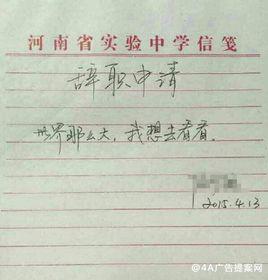 河南省实验中学信笺
辞职申请
世界那么大，我想去看看。
2015.4.13
@4A广告提案网